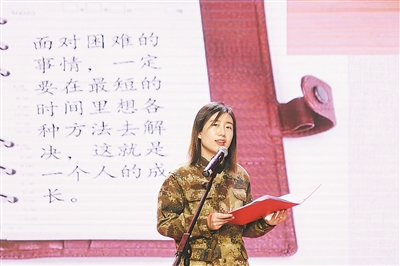 面对困难的
事情，一定
要在最短的
时间里想各
种方法去解
决，这就是
一个人的成
长。